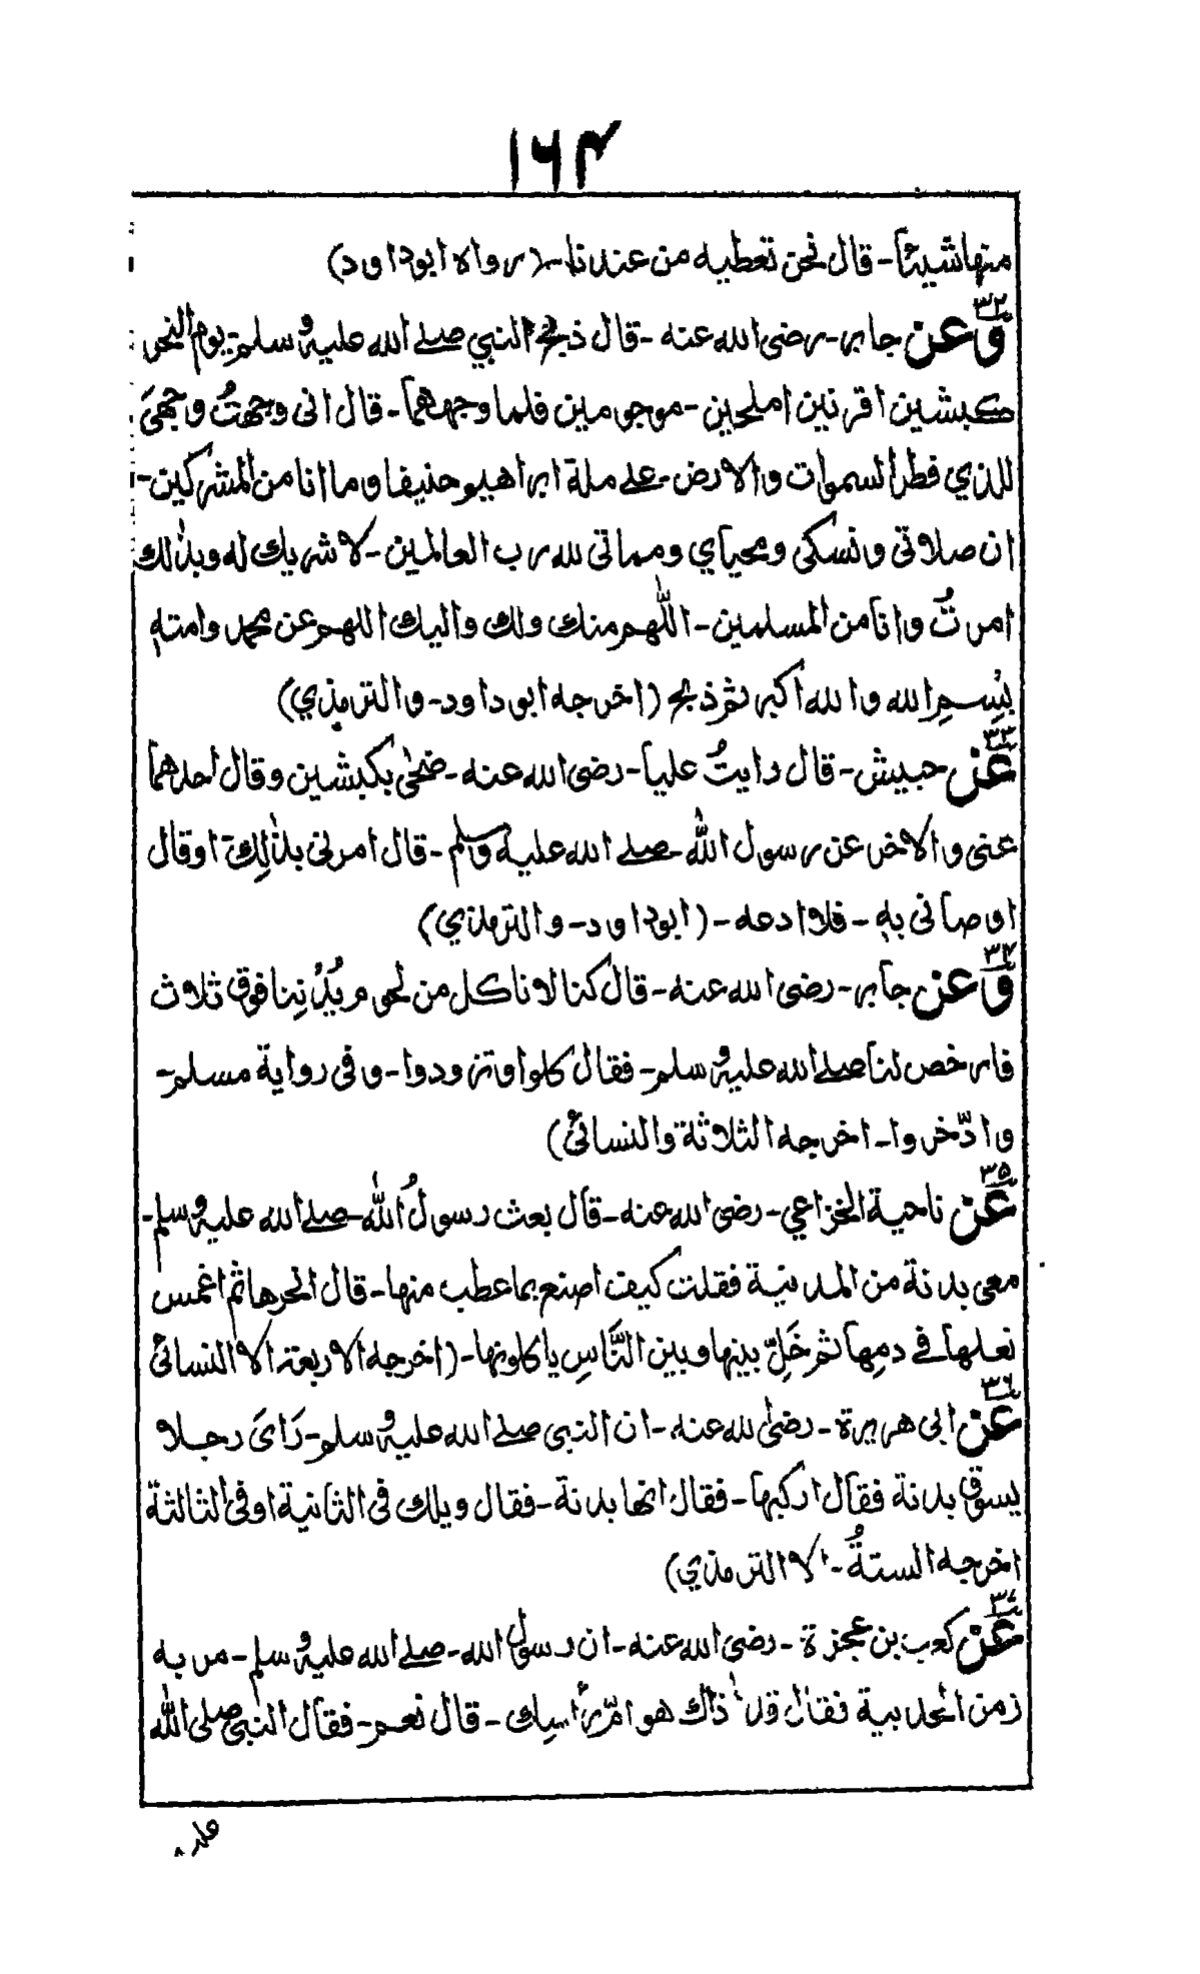 ۱۶۴
منها شيئاً - قال نحن نعطيه من عندنا - (رواه ابوداود)
۳۲
وعن جابر - رضى الله عنه - قال ذبح النبي صلے الله عليه وسلم - يوم النحر
كبشين اقرنين املحين - موجومين فلما وجههما - قال انى وجهتُ وجهىَ
للذي فطر السموات والارض - علے ملة ابراهيم حنيفا وما انا من المشركين -
ان صلاتى ونسكى ومحياي ومماتى لله رب العالمين - لا شريك له وبذلك
امرتُ وانا من المسلمين - اللّٰهم منك ولك واليك اللهم عن محمد وامته
بسم الله والله اكبر ثم ذبح (اخرجه ابوداود - والترمذي)
۳۳
عن حبيش - قال رايتُ عليا - رضى الله عنه - ضحٰى بكبشين وقال احدهما
عنى والاخر عن رسول اللّٰه - صلے الله عليه وسلم - قال امرنى بذٰلِك اوقال
اوصانى بهٖ - فلا ادعه - (ابوداود - والترمذي)
۳۴
وعن جابر - رضى الله عنه - قال كنا لا ناكل من لحوم بُدُنِنا فوق ثلاث
فارخص لنا صلے الله عليه وسلم - فقال كلوا وتزودوا - وفى رواية مسلم -
وادّخروا - اخرجه الثلاثة والنسائى)
۳۵
عن ناحية الخزاعي - رضى الله عنه - قال بعث رسولُ اللّٰه - صلے الله عليه وسلم -
معى بدنة من المدينة فقلت كيف اصنع بما عطب منها - قال انحرها ثم اغمس
نعلها فے دمِها ثم خَلِّ بينها وبين النَّاسِ ياكلونها - (اخرجه الاربعة الا النسائى
۳۶
عن ابى هريرة - رضى لله عنه - ان النبى صلے الله عليه وسلم - رَاىَ رجلا
يسوق بدنة فقال اركبها - فقال انها بدنة - فقال ويلك فى الثانية اوفى الثالثة
اخرجه الستةُ - الا الترمذي)
۳۷
عن كعب بن عجزة - رضى الله عنه - ان رسول الله - صلے الله عليه وسلم - مر به
زمن الحديبية فقال قد اٰذاك هوامّ رأسِك - قال نعم - فقال النبى صلى اللّٰه